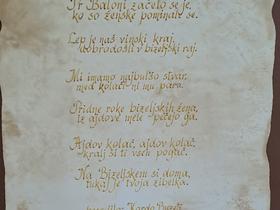 Tr Baloni začelo se je,
ko so ženske pominale se.
Lep je naš vinski kraj,
dobrodošli v bizeljski raj.
Mi imamo najbulšo stvar,
med kolači ni mu para.
Pridne roke bizeljskih žena,
iz ajdove mele pečejo ga.
Ajdov kolač, ajdov kolač,
kralj si ti vseh pogač.
Na Bizeljskem si doma,
tukaj je tvoja zibelka.